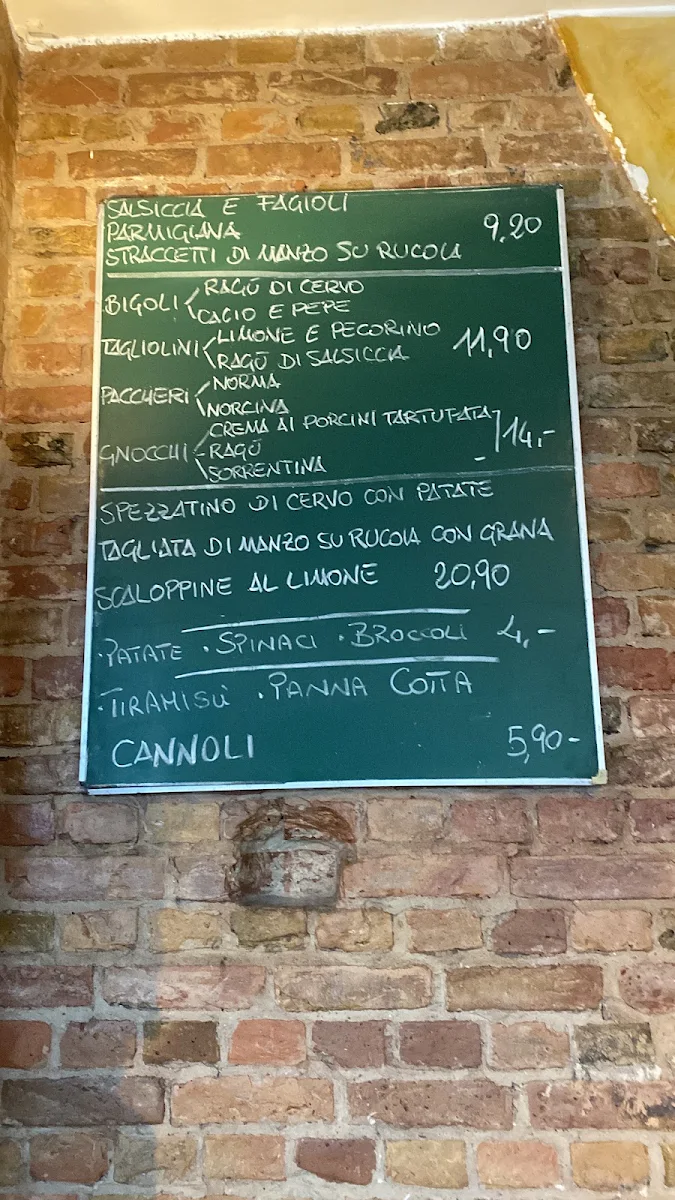 SALSICCIA E FAGIOLI
PARMIGIANA 9,20
STRACCETTI DI MANZO SU RUCOLA
BIGOLI RAGÙ DI CERVO
CACIO E PEPE
TAGLIOLINI LIMONE E PECORINO 11,90
RAGÙ DI SALSICCIA
PACCHERI NORMA
NORCINA
GNOCCHI CREMA AI PORCINI TARTUFATA 14,-
RAGÙ
SORRENTINA
SPEZZATINO DI CERVO CON PATATE
TAGLIATA DI MANZO SU RUCOLA CON GRANA
SCALOPPINE AL LIMONE 20,90
·PATATE ·SPINACI ·BROCCOLI 4,-
·TIRAMISÙ ·PANNA COTTA
CANNOLI 5,90-